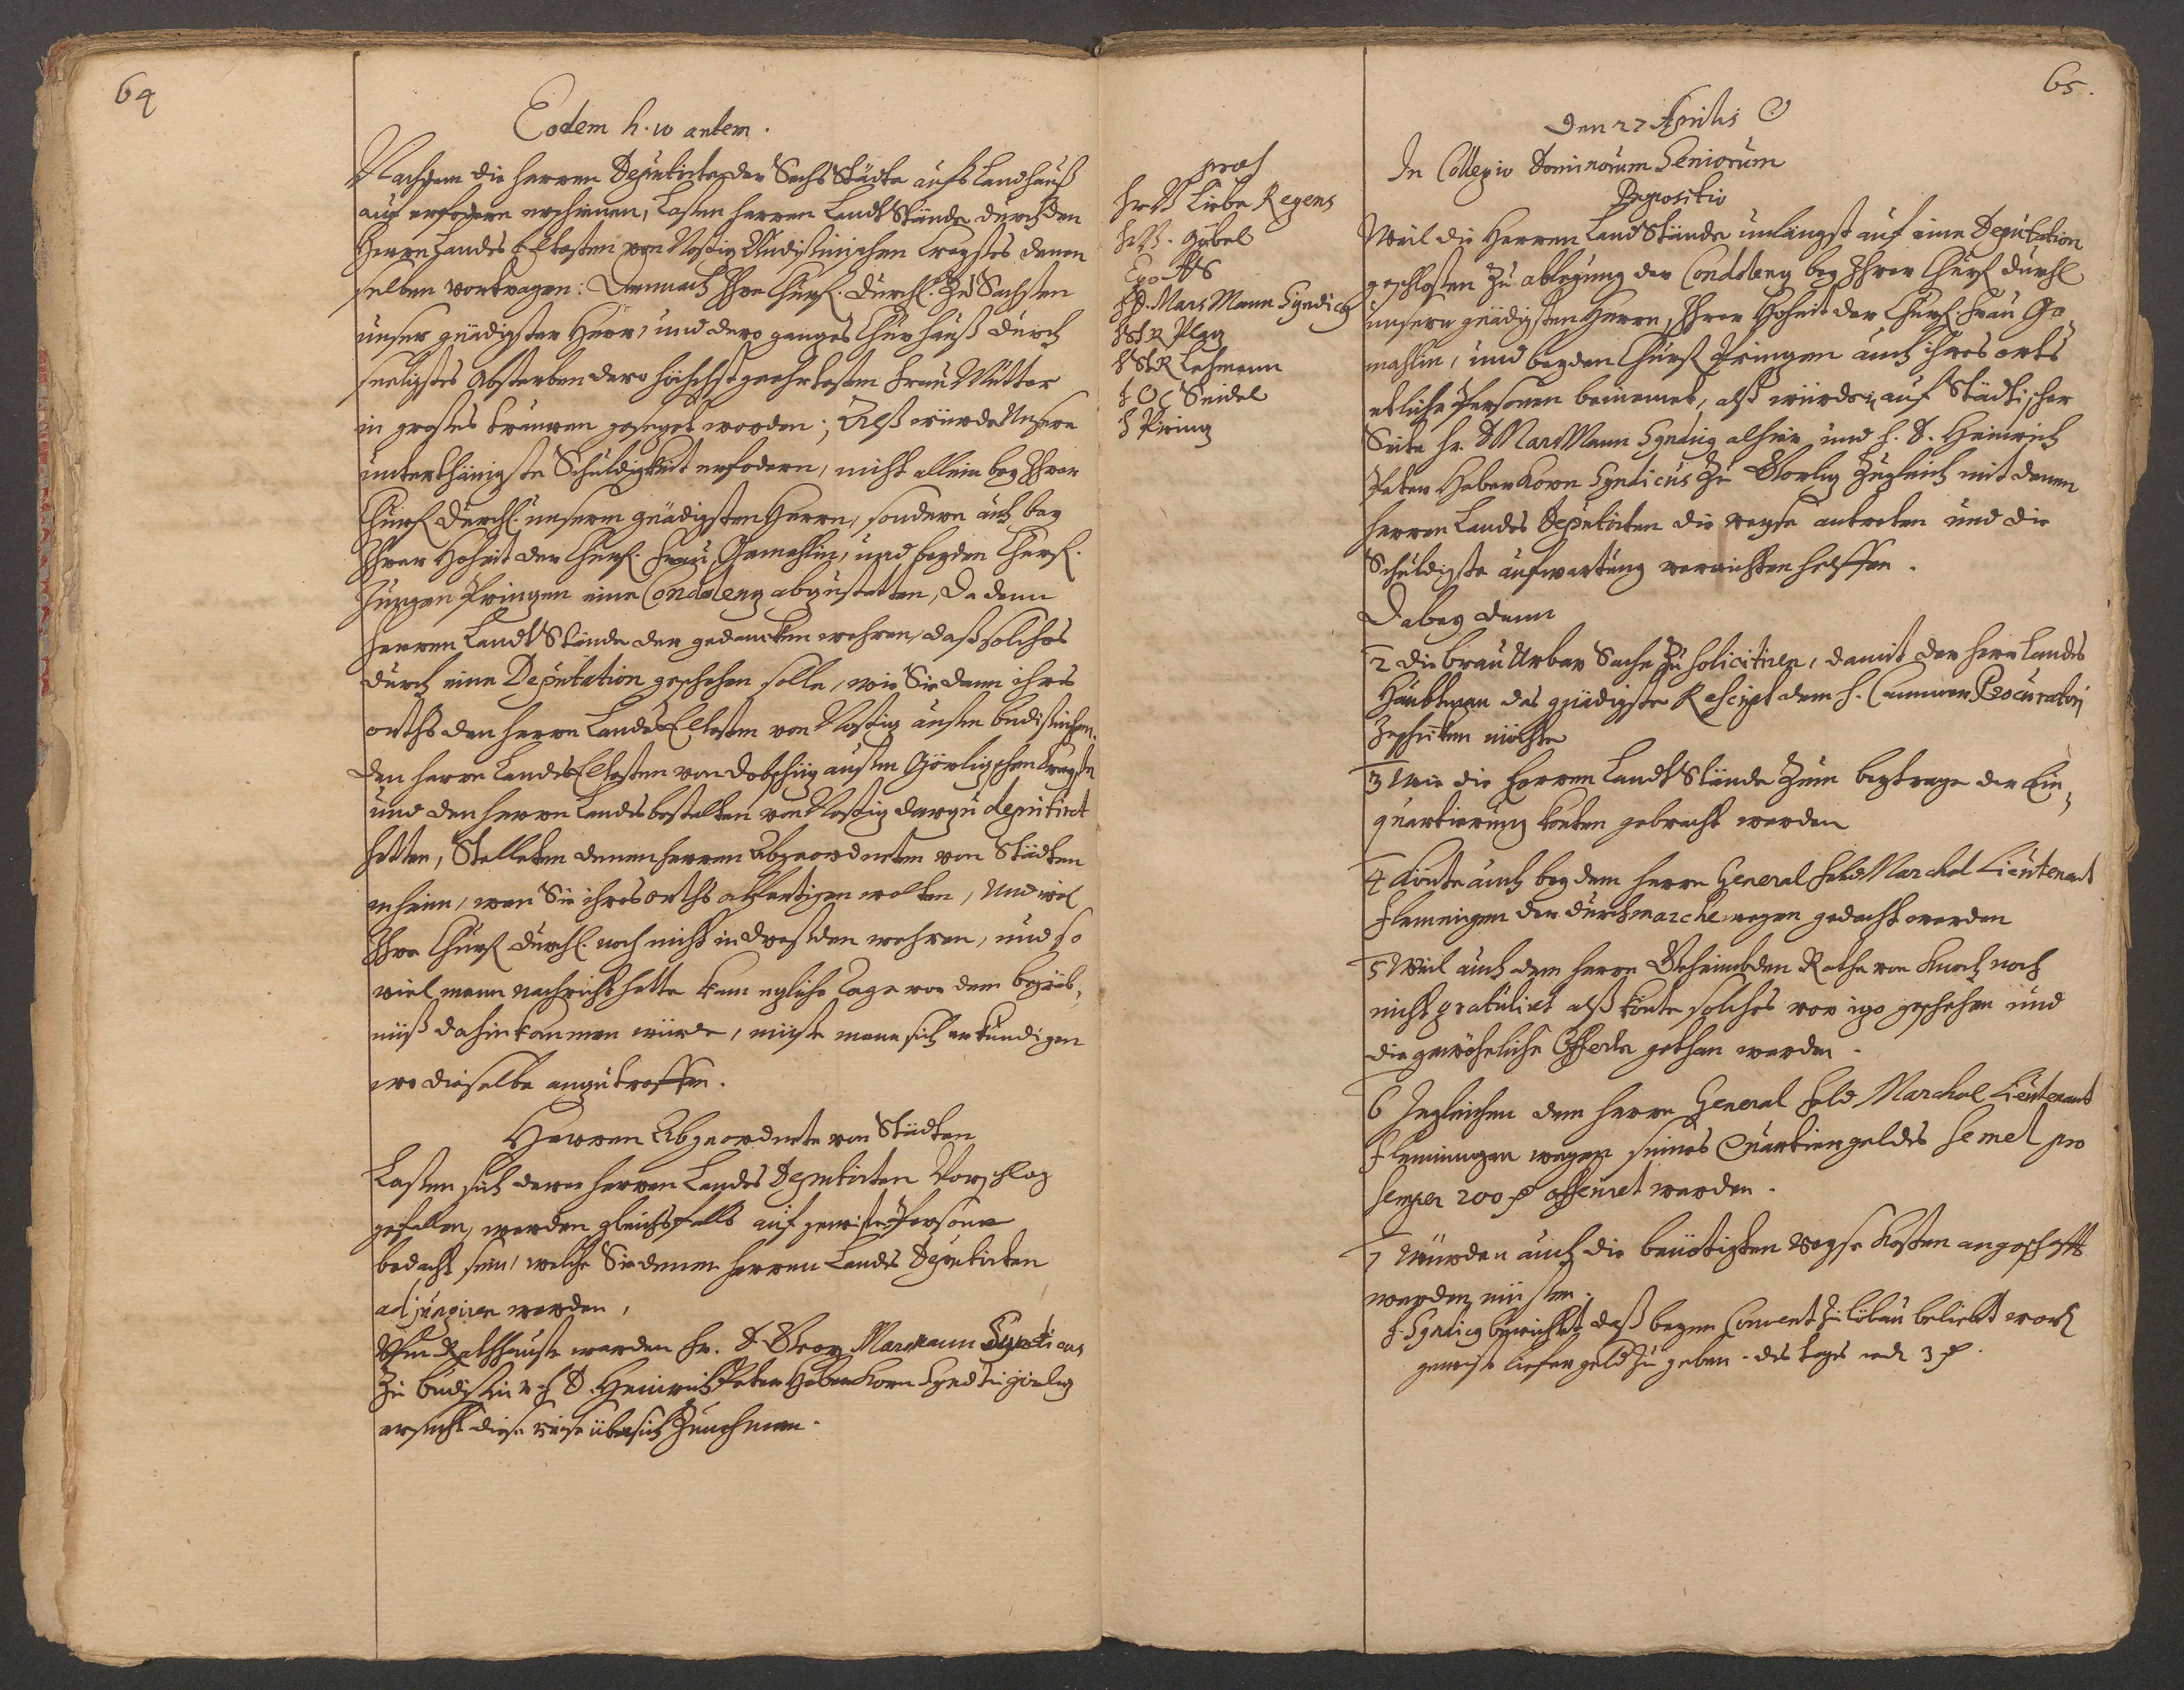 64
Eodem h. 10 antem.
Nachdem die Herren Deputirten der Sechs Städte aufs Landhauß
auf erfodern erschienen, laßen Herren Landt Stände durch den
Herrn Landes Elltesten von Nostiz Budißinischen Creyßes denen
selben vortragen: Demnach Ihre Churf. Durchl. Zu Sachßen
unser gnädigster Herr, und dero ganzes Chur hauß durch
seeligstes Absterben dero höchstgeehrtesten Frau Mutter
in großes trauren gesezet worden; Alß würde Unsere
unterthänigste Schuldigkeit erfodern, nicht allein bey Ihrer
Churf. Durchl. unserm gnädigsten Herrn, sondern auch bey
Ihrer Hoheit der Churf. Frau Gemahlin, und beyden Churf.
jungen Prinzen eine Condolenz abzustatten, Da denn
Herren Landt Stände der gedancken wehren, daß solches
durch eine Deputation geschehen solle, wie Sie dann ihres
orths den Herrn Landes Elltesten von Nostiz außm budißinischen,
den Herrn Landes Elltesten von Dobschüz außm Görlizschen Creyße
und den Herrn Landes bestalten von Nostiz darzu deputiret
hetten, Stelleten denen Herren Abgeordneten von Städten
anheim, wen Sie ihres orths abfertigen wolten, Und weil
Ihre Churf. Durchl. noch nicht in Dreßden wehren, und so
viel mann nachricht hette kaum ezliche Tage vor dem begräb,
nüß dahin kommen würde, müste mann sich erkundigen
wo dieselbe anzutreffen.
Herren Abgeordnete von Städten
Laßen sich derer Herren Landes Deputirten Vorschlag
gefallen, werden gleichsfalls auf gewiße Persone
bedacht sein, welche Sie denen Herren Landes Deputirten
adjungiren werden,
Uffm Rathhauße werden Hr. D. Marckmann Syndicus
zu budißin u. H. D. Heinrich Peter Haberkorn Synd. zu görliz
ersucht diese reise über sich zunehmen.
65.
præs
Hr. B Liebe Regens
Hr. B. Göbel
Ego
H D. Mars Mann Syndicus
H St R Plaz
H St R Lehmann
H Seidel
H Piring
Den 27 Aprilis
In Collegio Dominorum Seniorum
Propositio
Weil die Herren Land Stände unlängst auf eine Deputation
geschloßen zu ablegung der Condolenz bey Ihrer Churf. Durchl
unserm gnädigsten Herrn, Ihrer Hoheit der Churf. Frau Ge,
mahlin, und beyden Churf. Prinzen auch ihres orts
etliche Personen beniemet, alß würden auf Städtischer
Seite Hr. D Mars Mann Syndicus alhier und H. D. Heinrich
Peter Haberkorn Syndicus zu Görliz zugleich mit denen
Herren Landes Deputirten die reyse antreten und die
Schuldigste aufwartung verrichten helffen.
Dabey dann
2 die brau Urbar Sache zu solicitiren, damit der Herr Landes
Haubtman das gnädigste Rescript dem H. Cammer Procuratori
zuschicken möchte
3 Wie die Herren Landt Stände zum beytrage der Ein,
quartierung könten gebracht werden
4 Könte auch bey dem Herrn General Feld Marchal Lieutenant
Flemmigen der durchmarche wegen gedacht werden
5 Weil auch dem Herrn Geheimbden Rathe von Knoch noch
nicht gratuliret alß könte solches vor izo geschehen und
die gewöhnliche Offerte gethan werden.
6 Ingleichen dem Herrn General Feld Marchal Lieutenant
Flemmingen wegen seines Quartiergeldes semel pro
semper 200 offeriret werden.
7 Würden auch die benötigten Reyse Kosten angeschafft
werden müßen.
H. Syndicus berichtet daß beym Convent zu Löbau beliebt worden
gewiße liefergeld zu geben. des tages 3